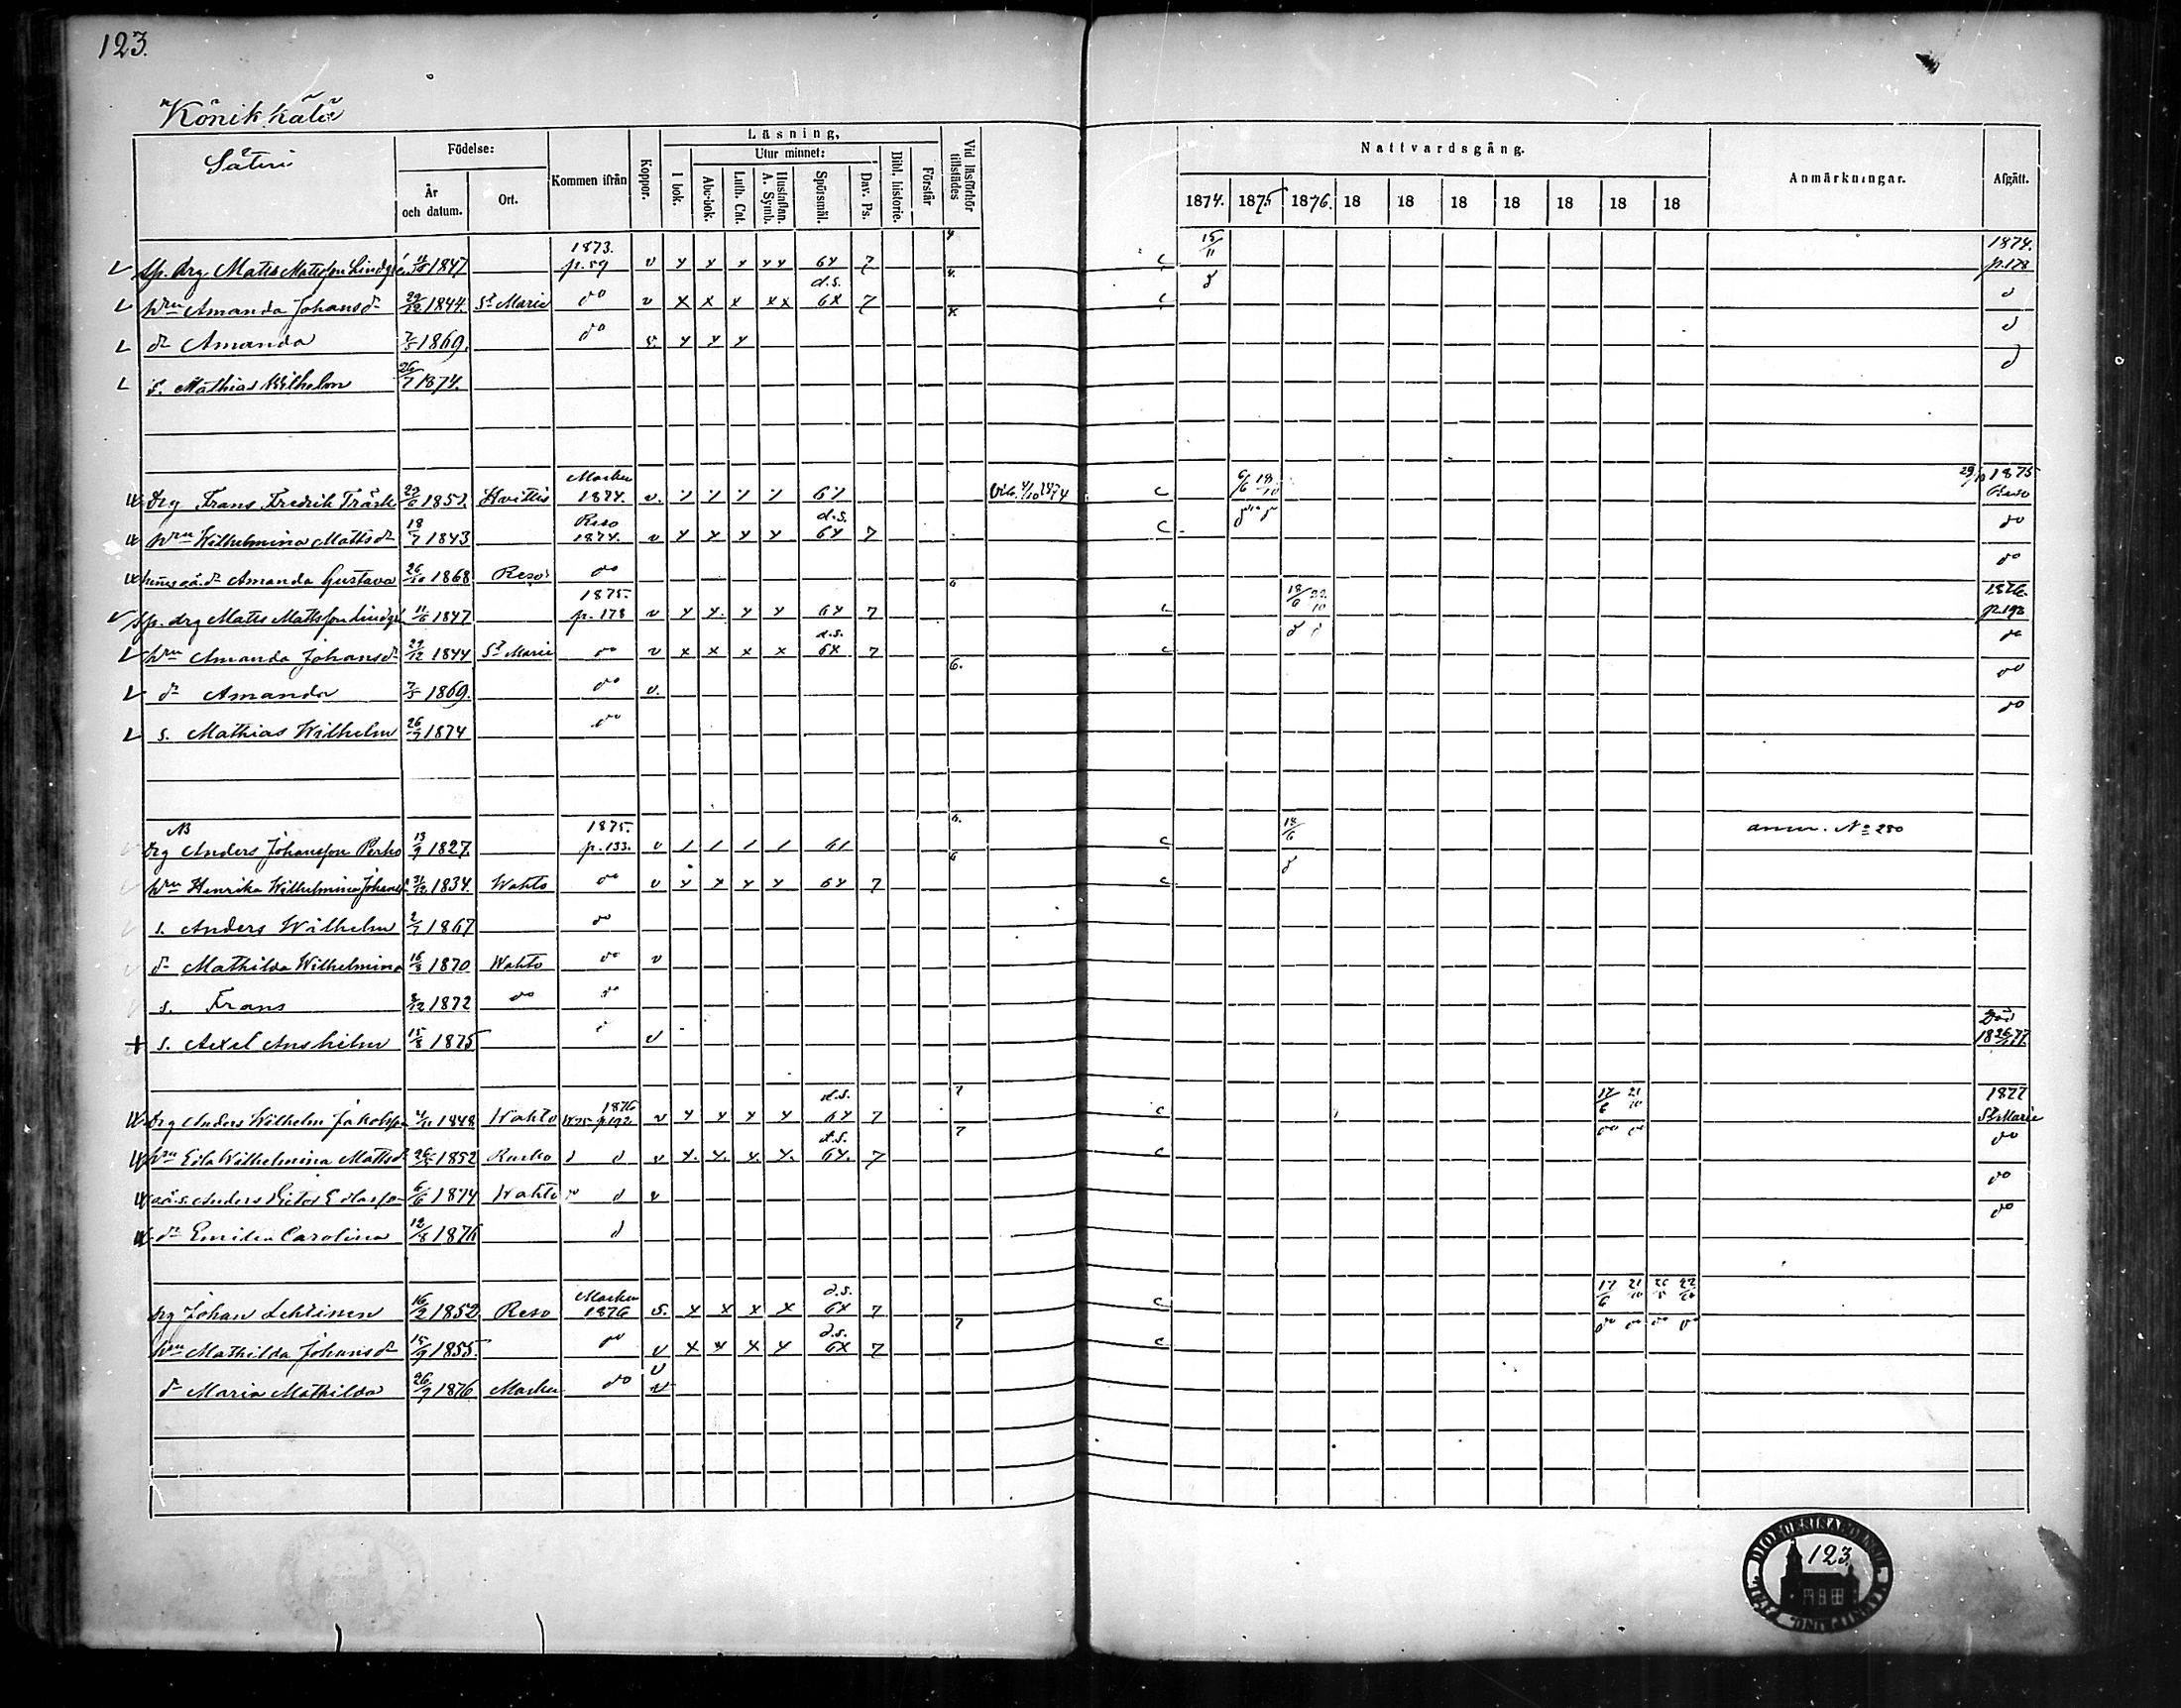 123.
Könikkälä
Säteri
Födelse:
År och datum.
Ort.
Kommen ifrån
Koppor.
Läsning,
1 bok.
Utur minnet:
Abc-bok.
Luth. Cat.
Hustaflan. A. Symb.
Spörsmål.
Dav. Ps.
Bibl. historie.
Förstår
Vid läsförhör tillstädes
Nattvardsgång.
1874. 1875 1876. 18 18 18 18 18 18 18
Anmärkningar.
Afgått.
Sp. drg Matts Mattsson Lindgren 1847 1873. p. 59 v x x x x x 6x 7 4 c 15/11 1874. p. 178
hru Amanda Johansdr 29/12 1844. St Marie do v x x x x x d.s. 6x 7 4. c d d
dr Amanda 7/5 1869. do v. x x x 4. d
s. Mathias Wilhelm 26/7 1874. d
drg Frans Fredrik Träsk 1851. Hvittis Masku 1874. v. 6 c 6/6 18/10 29/10 1875 Reso
hru Wilhelmina Mattsdr 18/7 1843 Reso 1874. v x x x x d.s. 6x 7 c do
hennes oä. dr Amanda Gustava 26/10 1868 Reso do do
Sp. drg Matts Mattsson Lindgr 1847 1875. p. 178 v x x x x 6x 7 6 c 18/6 22/10 1876. p. 198
hru Amanda Johansdr 29/12 1844 St Marie do v x x x x d.s. 6x 7 c d d do
dr Amanda 7/5 1869. do v. 6. do
s. Mathias Wilhelm 26/7 1874 do do
NB
drg Anders Johansson Perho 13/9 1827. 1875. p. 133. v / / / / 6/ 6. c 18/6 anm. No 280
hru Henrika Wilhelmina Johansdr 31/12 1834. Wahto do v x x x x 6x 7 6 c d
s. Anders Wilhelm 2/7 1867 do
dr Mathilda Wilhelmina 16/3 1870 Wahto do v
s. Frans 1872 do do
+ s. Axel Anshelm 15/8 1875 v Död 18 77.
drg Anders Wilhelm Jakobss 1848 Wahto 1876 p 192 v x x x x d.s. 6x 7 7 c 17/6 21/10 1877 St Marie
hru Eva Wilhelmina Mattsdr 1852 Rusko d d v x. x. x. x. d.s. 6x. 7 7 c do do do
oä. s. Anders 6/6 1874 Wahto d v do
dr Emilia Carolina 12/8 1876 d do
drg Johan Lehtinen 16/2 1852 Reso Masku 1876 v. x x x x d.s. 6x 7 c 17/6 21/10
hru Mathilda Johansdr 15/9 1855. do v x x x x d.s. 6x 7 7 c do do do do
dr Maria Mathilda 26/9 1876 Masku do v
123.